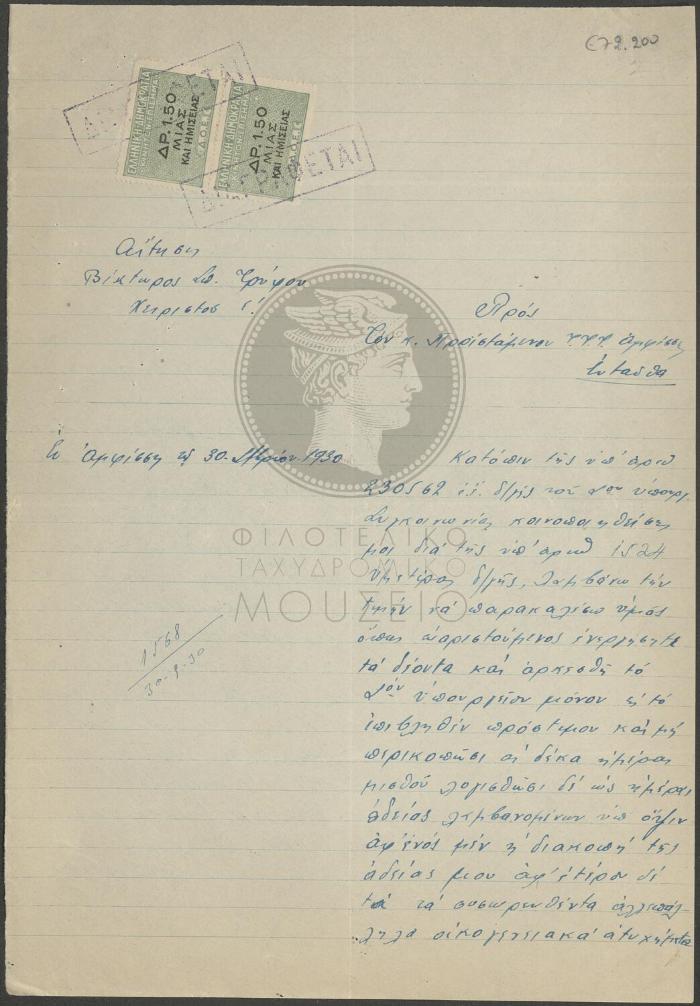 €72.200
ΕΛΛΗΝΙΚΗ ΔΗΜΟΚΡΑΤΙΑ
ΔΡ. 1.50
ΜΙΑΣ
ΚΑΙ ΗΜΙΣΕΙΑΣ
ΕΛΛΗΝΙΚΗ ΔΗΜΟΚΡΑΤΙΑ
ΔΡ. 1.50
ΜΙΑΣ
ΚΑΙ ΗΜΙΣΕΙΑΣ
Αἴτησις
Βίκτωρος Σπ. Τρύφου
Χειριστοῦ
Πρός
Τόν κ. Προϊστάμενον Τ.Τ.Τ. Ἀμφίσσης
Ἐνταῦθα
Ἐν Ἀμφίσσῃ τῇ 30 1930
Κατόπιν τῆς ὑπ' ἀριθ
230562 ἐ.ἔ. δ/γῆς τοῦ Σου ὑπουργ.
Συγκοινωνίας κοινοποιηθείσης
μοι διά τῆς ὑπ' ἀριθ 1524
ὑμετέρας δ/γῆς, λαμβάνω τήν
τιμήν νά παρακαλέσω ὑμᾶς
ὅπως εὐαρεστούμενος ἐνεργήσητε
τά δέοντα καί ἀρκεσθῇ τό
Σόν ὑπουργεῖον μόνον εἰς τό
ἐπιβληθέν πρόστιμον καί μή
περικοπῶσι αἱ δέκα ἡμέραι
μισθοῦ λογισθῶσι δέ ὡς ἡμέραι
ἀδείας λαμβανομένων ὑπ' ὄψιν
ἀφ' ἑνός μέν ἡ διακοπή τῆς
ἀδείας μου ἀφ' ἑτέρου δέ
τά συσωρευθέντα ἀλλεπάλ-
ληλα οἰκογενειακά ἀτυχήματα
1568
30-9-30
ΦΙΛΟΤΕΛΙΚΟ
ΤΑΧΥΔΡΟΜΙΚΟ
ΜΟΥΣΕΙΟ